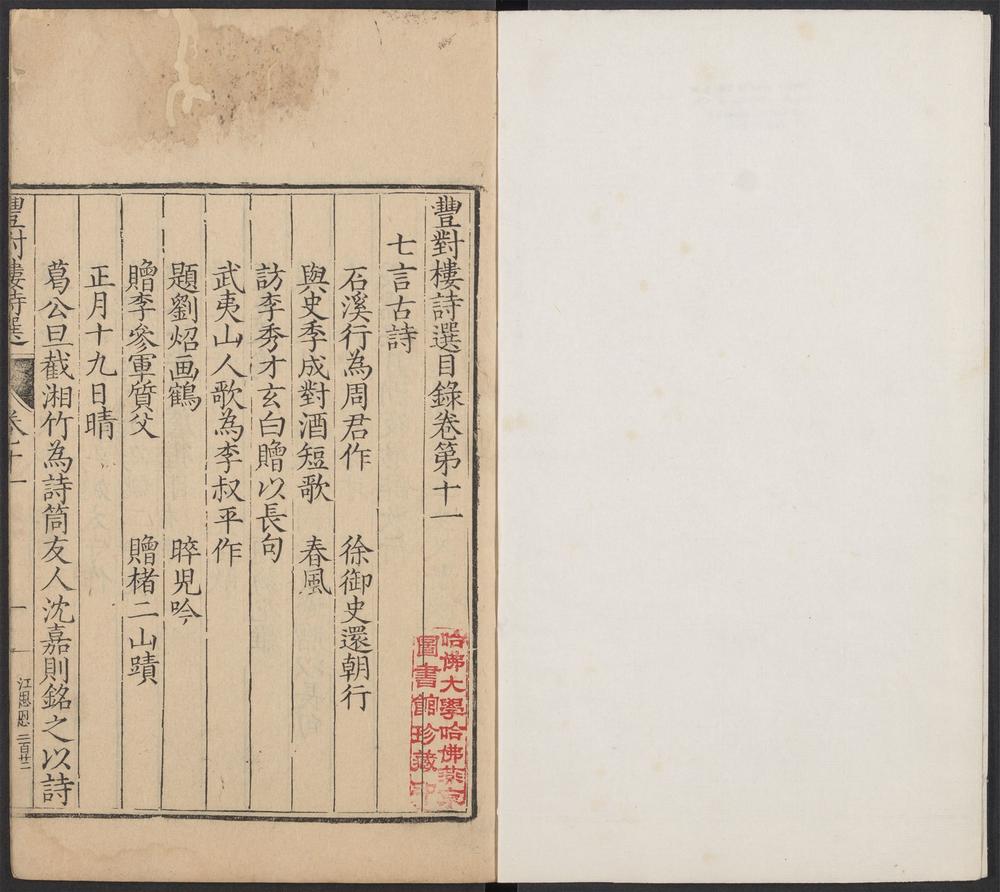 豐對樓詩選目錄卷第十一
七言古詩
石溪行為周君作 徐御史還朝行
與史季成對酒短歌 春風
訪李秀才玄白贈以長句
武夷山人歌為李叔平作
題劉炤画鶴 晬児吟
贈李參軍質父 贈楮二山蹟
正月十九日晴
葛公旦截湘竹為詩筒友人沈嘉則銘之以詩
豐對樓詩選 卷十一 一
江恩 二百廿二
哈佛大學哈佛燕京
圖書館珍藏印